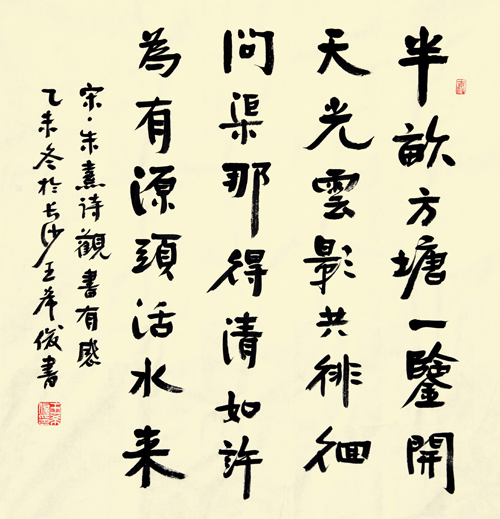 半畝方塘一鑒開
天光雲影共徘徊
問渠那得清如許
為有源頭活水来
宋·朱熹诗觀書有感
乙未冬於长沙王希俊書